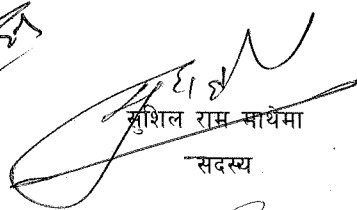 सुशिल राम माथेमा
सदस्य